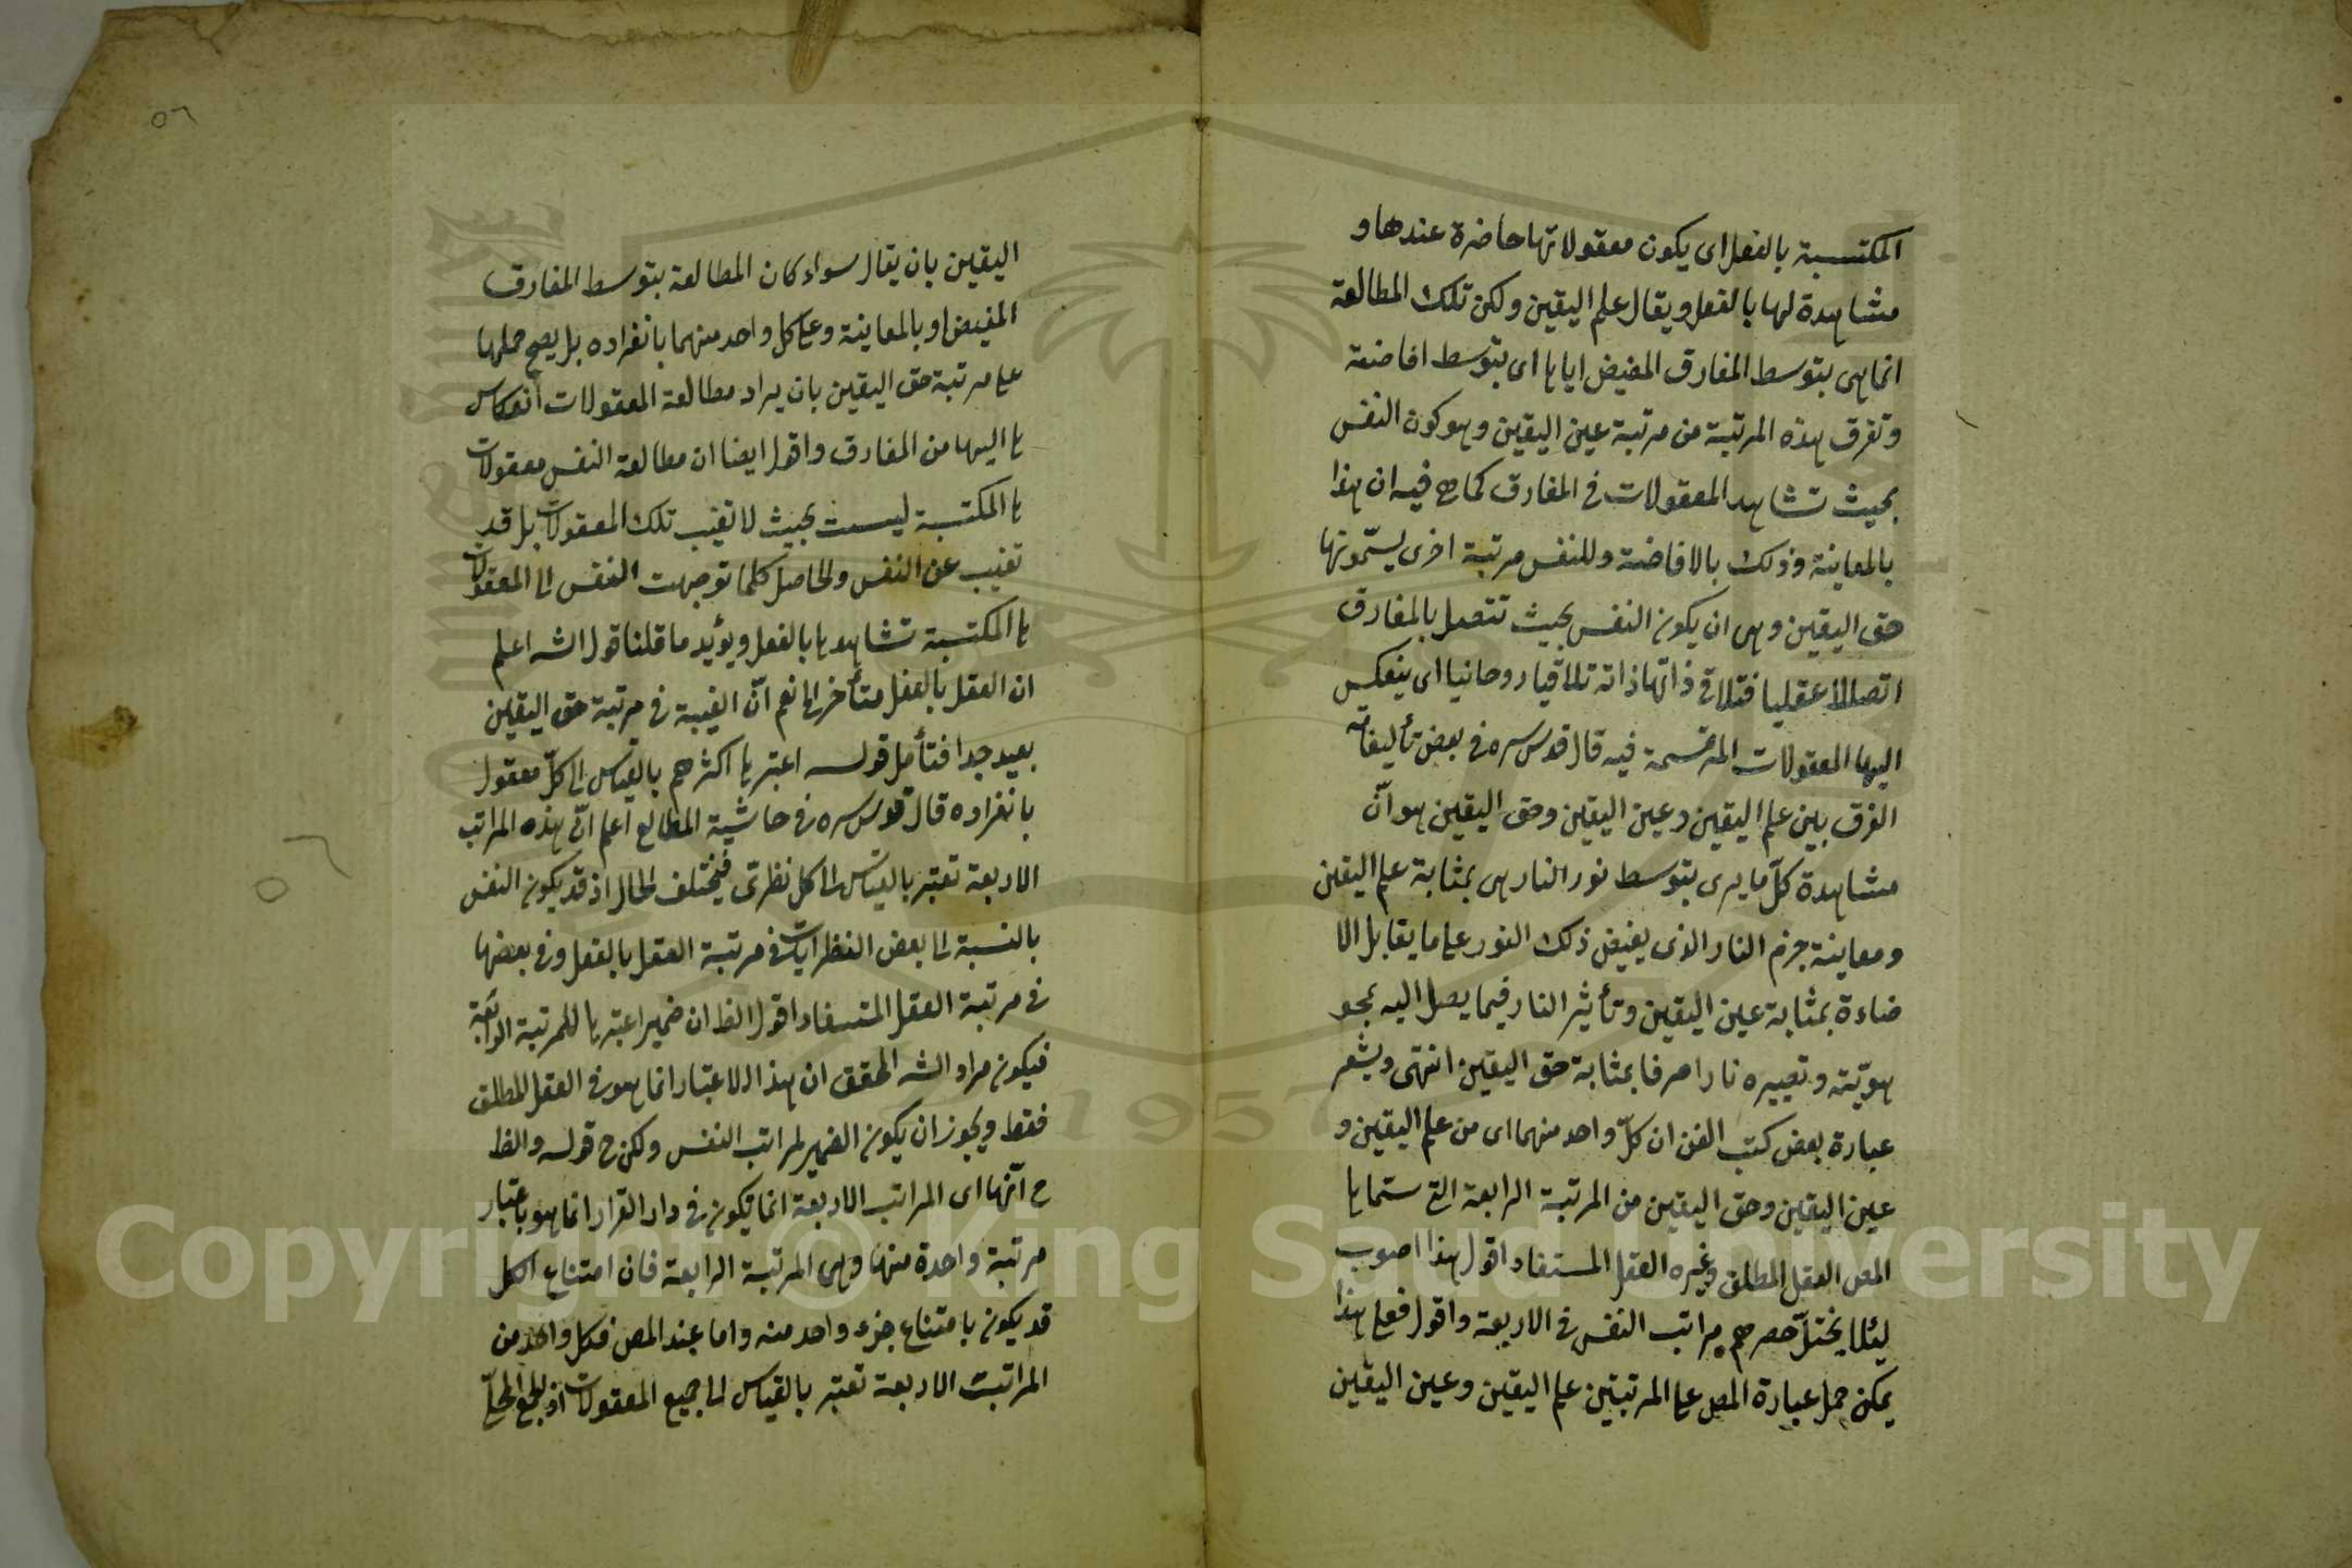 المكتسبة بالفعل اى يكون معقولاتها حاضرة عندها و
مشاهدة لها بالفعل ويقال علم اليقين ولكن تلك المطالعة
انما هى بتوسط المفارق المفيض اياها اى بتوسط افاضته
وتفرق هذه المرتبة من مرتبة عين اليقين وهو كون النفس
بحيث تشاهد المعقولات فى المفارق كما هى فيه ان هذا
بالمعاينة وذلك بالافاضة وللنفس مرتبة اخرى يسمّونها
حق اليقين وهى ان يكون النفس بحيث تتصل بالمفارق
اتصالا عقليا فتلاقى ذاتها ذاته تلاقيا روحانيا اى ينعكس
اليها المعقولات المرتسمة فيه قال قدس سره فى بعض تأليفاته
الفرق بين علم اليقين وعين اليقين وحق اليقين هو انّ
مشاهدة كلّ ما يرى بتوسط نور النار هى بمثابة علم اليقين
ومعاينة جرم النار الذى يفيض ذلك النور على ما يقابل الا
ضاءة بمثابة عين اليقين وتأثير النار فيما يصل اليه بمحو
هويّته وتصييره نارا صرفا بمثابة حق اليقين انتهى ويشعر
عبارة بعض كتب الفن ان كلّ واحد منهما اى من علم اليقين و
عين اليقين وحق اليقين من المرتبة الرابعة التى ستماها
المص العقل المطلق وغيره العقل المستفاد اقول هذا اصوب
لئلا يختلّ حصرهم مراتب النفس فى الاربعة واقول فعلى هذا
يمكن حمل عبارة المص على المرتبتين علم اليقين وعين اليقين
اليقين بان يقال سواء كان المطالعة بتوسط المفارق
المفيض او بالمعاينة وعلى كل واحد منهما بانفراده بل يصح حملها
على مرتبة حق اليقين بان يراد مطالعة المعقولات انعكاس
ها اليها من المفارق واقول ايضا ان مطالعة النفس معقولات
ها المكتسبة ليست بحيث لا تغيب تلك المعقولات بل قد
تغيب عن النفس والحاصل كلما توجهت النفس الى المعقولات
ها المكتسبة تشاهدها بالفعل ويؤيد ما قلنا قول الشه اعلم
ان العقل بالفعل متأخر الى نعم انّ الغيبة فى مرتبة حق اليقين
بعيد جدا فتأمل قوله اعتبرها اكثرهم بالقياس الى كلّ معقول
بانفراده قال قدس سره فى حاشية المطالع اعلم انّ هذه المراتب
الاربعة تعتبر بالقياس الى كل نظرىّ فيختلف الحال اذ قد يكون النفس
بالنسبة الى بعض النظرايات فى مرتبة العقل بالفعل وفى بعضها
فى مرتبة العقل المستفاد اقول الظ ان ضمير اعتبرها للمرتبة الرابعة
فيكون مراد الشه المحقق ان هذا الاعتبار انما هو فى العقل المطلق
فقط ويجوز ان يكون الضمير لمراتب النفس ولكن ح قوله والظ
ح انّها اى المراتب الاربعة انما تكون فى دار القرار انما هو باعتبار
مرتبة واحدة منها وهى المرتبة الرابعة فان امتناع الكل
قد يكون بامتناع جزء واحد منه واما عند المص فكل واحد من
المراتب الاربعة تعتبر بالقياس الى جميع المعقولات اذ
٥٦
٥٦